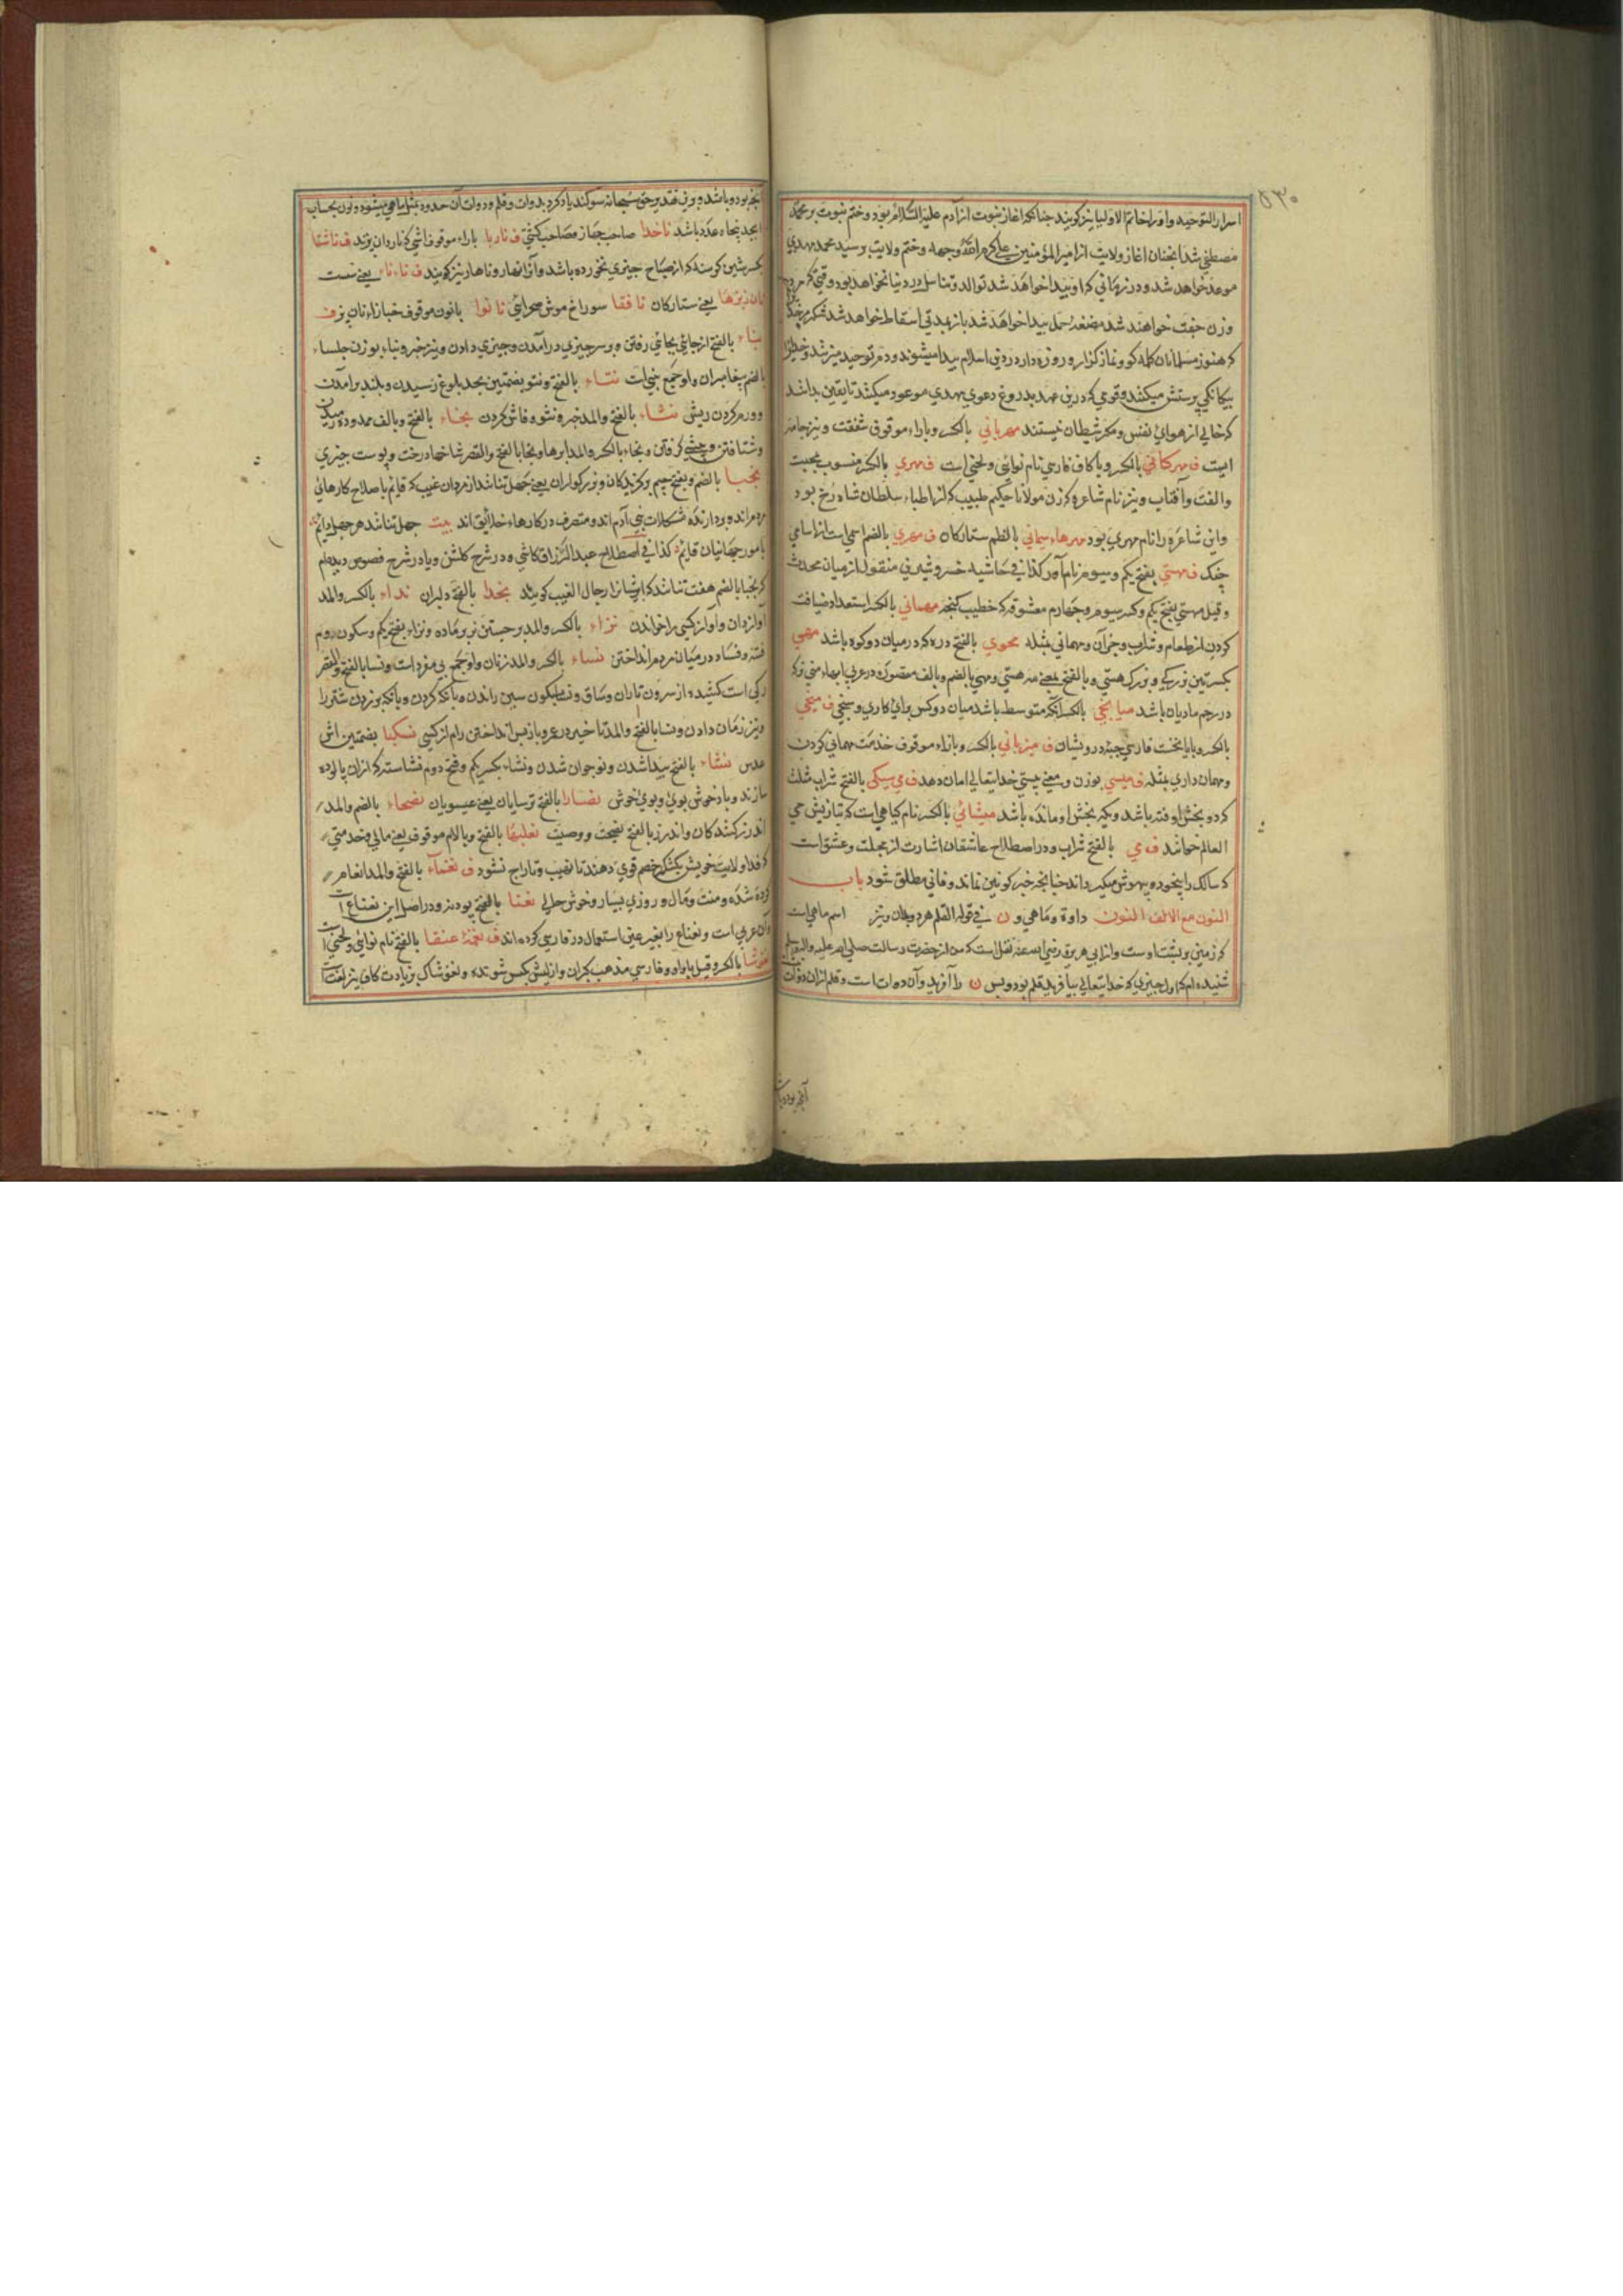 ۵۳۰
اسرار التوحید و او را خاتم الاولیا نیز کویند چنانکه اغاز نبوت از آدم علیه السلام بود و ختم نبوت بر محمد
مصطفی شد انجنان اغاز ولایت از امیر المؤمنین علی کرم الله وجهه و ختم ولایت بر سید محمد مهدی
موعد خواهد شد و در زمانی که او پیدا خواهد شد توالد و تناسل در دنیا نخواهد بود وقتی که مرد
وزن جفت خواهند شد مضغهٔ حمل پیدا خواهد شد باز بمدتی اسقاط خواهد شد
که هنوز مسلمانان کلمه کو و نماز کزار و روزه دار در دین اسلام پیدا میشوند و دم توحید میزنند و خدایرا
بیکانکی پرستش میکنند و قومی که درین عهد بدروغ دعوی مهدی موعود میکنند تا یقین بدانند
که خالی از هوای نفس و مکر شیطان نیستند مهربانی بالکسر و بارا موقوف شفقت و نیز جامه
ایست ف مهرکانی بالکسر و با کاف فارسی نام نوائی و لحنی است ف مهری بالکسر منسوب بمحبت
والفت و آفتاب و نیز نام شاعره که زن مولانا حکیم طبیب که از اطباء سلطان شاه رخ بود
واین شاعره را نام مهری بود مهرهاء سیمانی بالضم ستارکان ف مهری بالضم اسمی است از اسامی
چنک ف مهستی بفتح یکم و سیوم نام آور کذا فی حاشیه خسرو شیرین منقول از میان محدث
وقیل مهستی بفتح یکم و کسر سیوم و چهارم معشوقه که خطیب کنجه مهمانی بالکسر استعداد ضیافت
کردن از طعام و شراب و جز آن و مهمانی مثله محوی بالفتح دره که در میان دو کوه باشد مهی
بکسرتین بزرکی و بزرک هستی و بالفتح بمعنی مه هستی و مهی بالضم و بالف مقصوره در عربی ابهاء منی نر که
در رحم مادیان باشد میانجی بالکسر آنکه متوسط باشد میان دو کس برای کاری و سنجی ف میخی
بالکسر و با یا تحت فارسی جبه درویشان ف میزبانی بالکسر و بازاء موقوف خذمت مهمانی کردن
و مهمان داری مثله ف میسی بوزن و معنی بیستی خدایتعالی امان دهد ف می سیکی بالفتح شراب مثلث
کرده بخش او فته باشد و یکه بخش او مانده باشد میشائی بالکسر نام کیاهی است که بتازیش حی
العالم خوانند ف می بالفتح شراب و در اصطلاح عاشقان اشارت از محبت و عشق است
که سالک را بیخود و بیهوش میکرداند چنانچه خبر کونین نماند و فانی مطلق شود باب
النون مع الالف النون دواة و ماهی و ن فی قوله القلم هر دو بلدان و نیز اسم ماهی است
که زمین بر پشت اوست و از ابی هریره رضی الله عنه نقل است که من از حضرت رسالت صلی الله علیه و اله و سلم
شنیده ام که اول چیزی که خدایتعالی بیافرید قلم بود و پس ن را آفرید و آن دوات است و قلم از ان دوات
آنچه بود و باشد
آنچه بود و باشد و برین تقدیر حق سبحانه سوکند یاد کرد بدوات و قلم و دوات آن حدود مثل ماهی میشود و نون بحساب
ابجد پنجاه عدد باشد ناخدا صاحب جهاز و صاحب کشتی ف ناربا باراء موقوف اشی که ناردان پزند ف ناشتا
بکسر شین کرسنه که از صباح چیزی نخورده باشد و آنرا نهار و ناهار نیز کویند ف ناءناء یعنی نیست
یعنی ستارکان نافقا سوراخ موش صحرائی نانوا بانون موقوف خباز اء نان پز ف
نباء بالفتح از جائی بجائی رفتن و بر سر چیزی درآمدن و چیزی دادن و نیز خبر و نباء بوزن جلساء
بالضم پیغامبران و او جمع نبی است نتاء بالفتح و نتو بضمتین بحد بلوغ رسیدن و بلند برآمدن
و ورم کردن ریش نثاء بالفتح والمد خبر و نثوه فاش کردن نجاء بالفتح و بالف ممدوده رهیدن
و شتافتن و پیشی کرفتن و نجاء بالکسر والمد ابرها و نجا بالفتح والقصر شاخها درخت و پوست چیزی
نجبا بالضم و بفتح جیم برکزیدکان و بزرکواران یعنی چهل تنانند از مردان غیب که قایم باصلاح کارهای
مردم اند و بردارنده مشکلات بنی آدم اند و متصرف در کارهاء خلائق اند بیت چهل تنانند هر چهل دایم
بامور جهانیان قایم کذا فی اصطلاح عبد الرزاق کاشی و در شرح کلشن و یا در شرح فصوص دیده ام
که نجبا بالضم هفت تنانند که ایشانرا رجال الغیب کویند نخدا بالفتح دلیران نداء بالکسر والمد
آواز دادن و آواز کسی را خواندن نزاء بالکسر والمد بر جستن نر بر ماده و نزاء بفتح یکم و سکون دوم
فتنه و فساد در میان مردم انداختن نساء بالکسر والمد زنان و او جمع بی مفرد است و نسا بالفتح والقصر
رکی است کشیده از سرون تا ران و ساق و نسا بسکون سین راندن و بانکه کردن و بانکه بر زدن شتر را
و نیز زمان دادن و نسا بالفتح والمد تاخیر در عمر و باز پس انداختن وام از کسی نسکبا بضمتین اش
عدس نشاء بالفتح پیدا شدن و نوجوان شدن و نشاء بکسر یکم و فتح دوم نشاسته که از ان پالوده
سازند و باد خوش بوی و بوی خوش نصارا بالفتح ترسایان یعنی عیسویان نصحاء بالضم والمد
اندرز کنندکان و اندرز بالفتح نصیحت و وصیت نعلبها بالفتح و بالام موقوف یعنی مالی و خدمتی
که فداء ولایت خویش بلشکر خصم قوی دهند تا نهیب و تاراج نشود ف نعماء بالفتح والمد انعام
کرده شده و منت و مال و روزی بسیار و خوش حالی نغنا بالفتح پودنه و در اصل این نعناع است
وآن عربی است و نعناع را بغیر عین استعمال در فارسی کرده اند ف نغمهٔ عنقا بالفتح نام نوائی و لحنی است
نغوشا بالکسر و قیل باواو و فارسی مذهب کبران و از کیش بکیش شونده و نغوشاک بزیادت کاف نیز لغت است